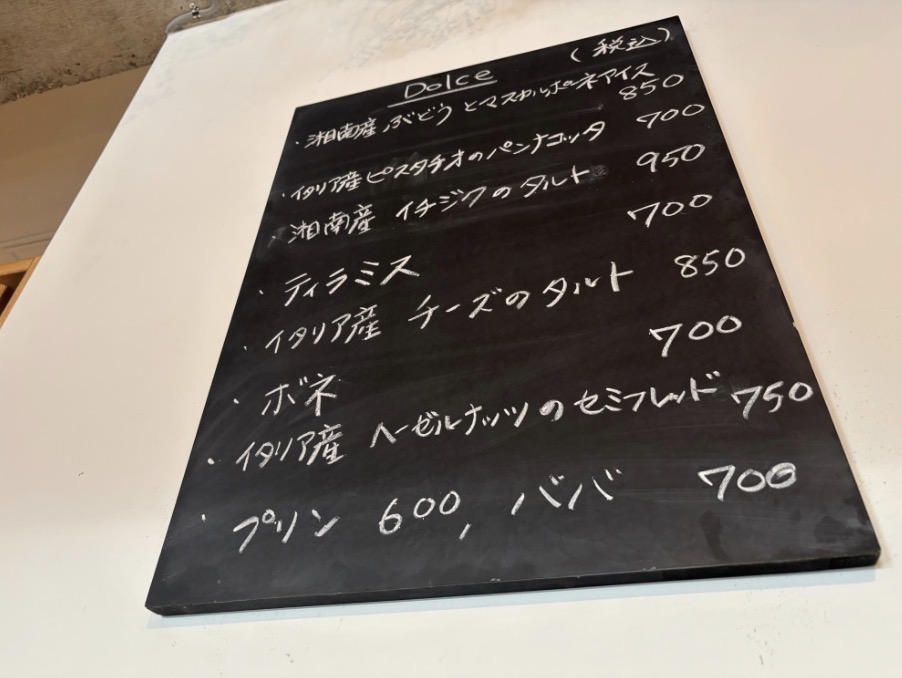 Dolce (税込)
・湘南産 ぶどうとマスカルポーネアイス 850
・イタリア産ピスタチオのパンナコッタ 700
・湘南産 イチジクのタルト 950
・ティラミス 700
・イタリア産 チーズのタルト 850
・ボネ 700
・イタリア産 ヘーゼルナッツのセミフレッド 750
・プリン 600, ババ 700